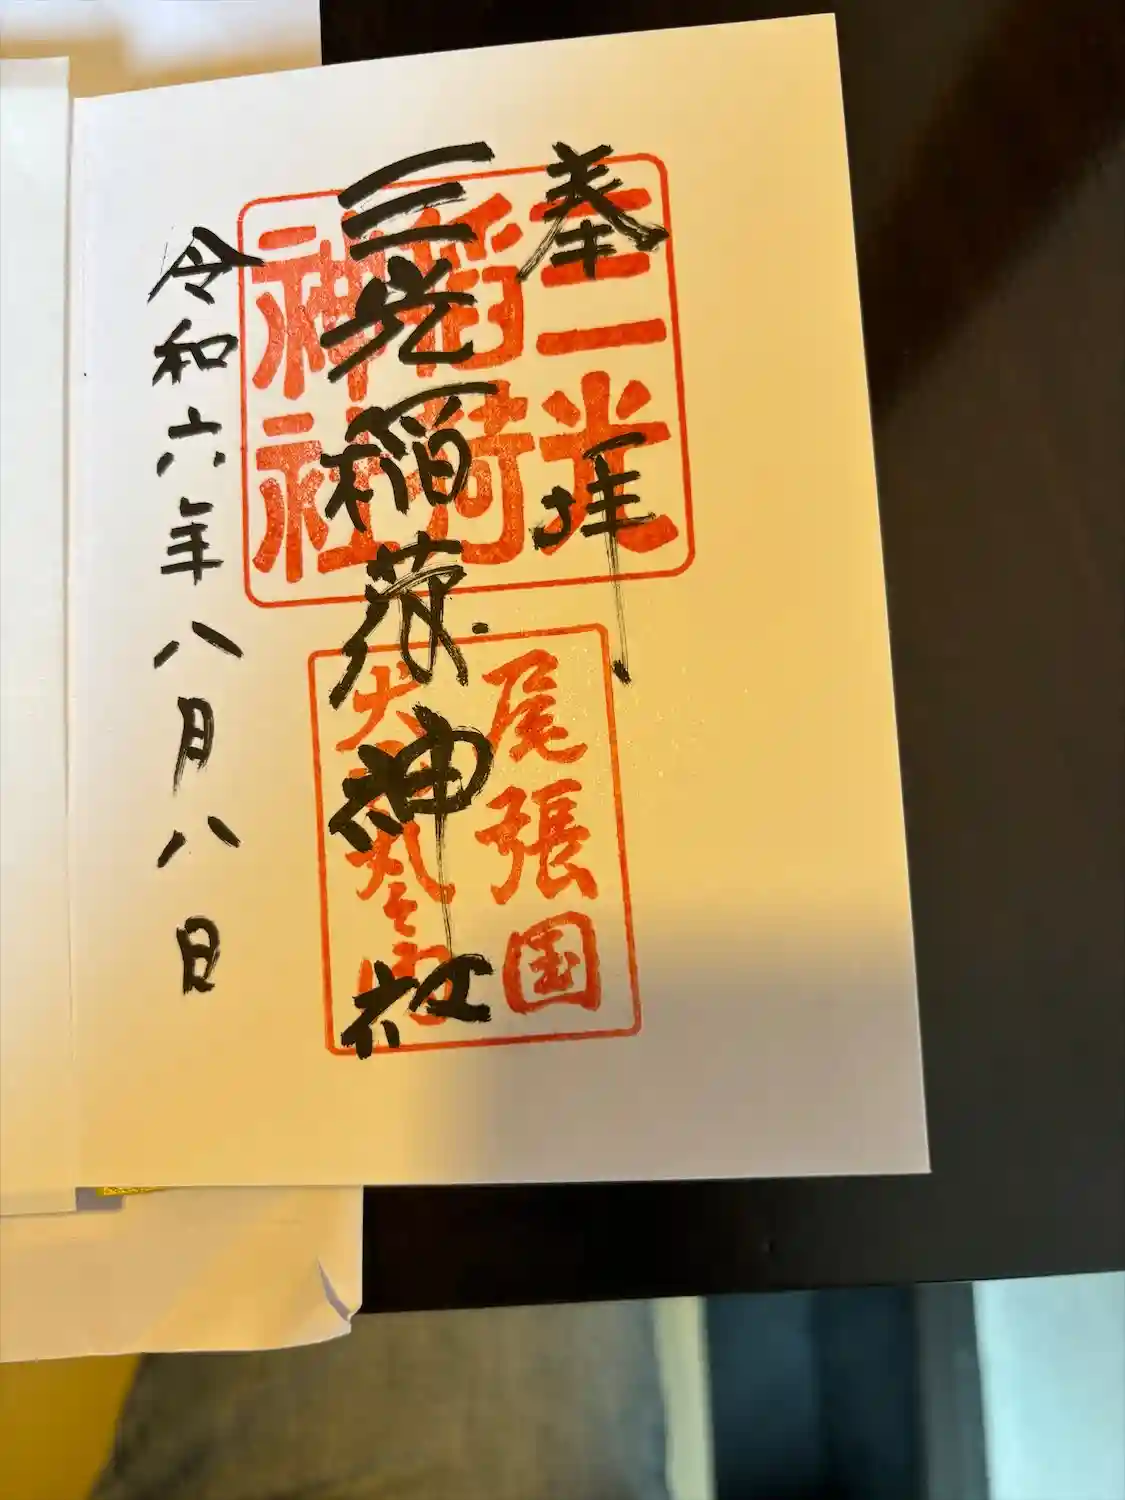 奉拝
三光稲荷神社
令和六年八月八日
三光
稲荷
神社
尾張国
犬山